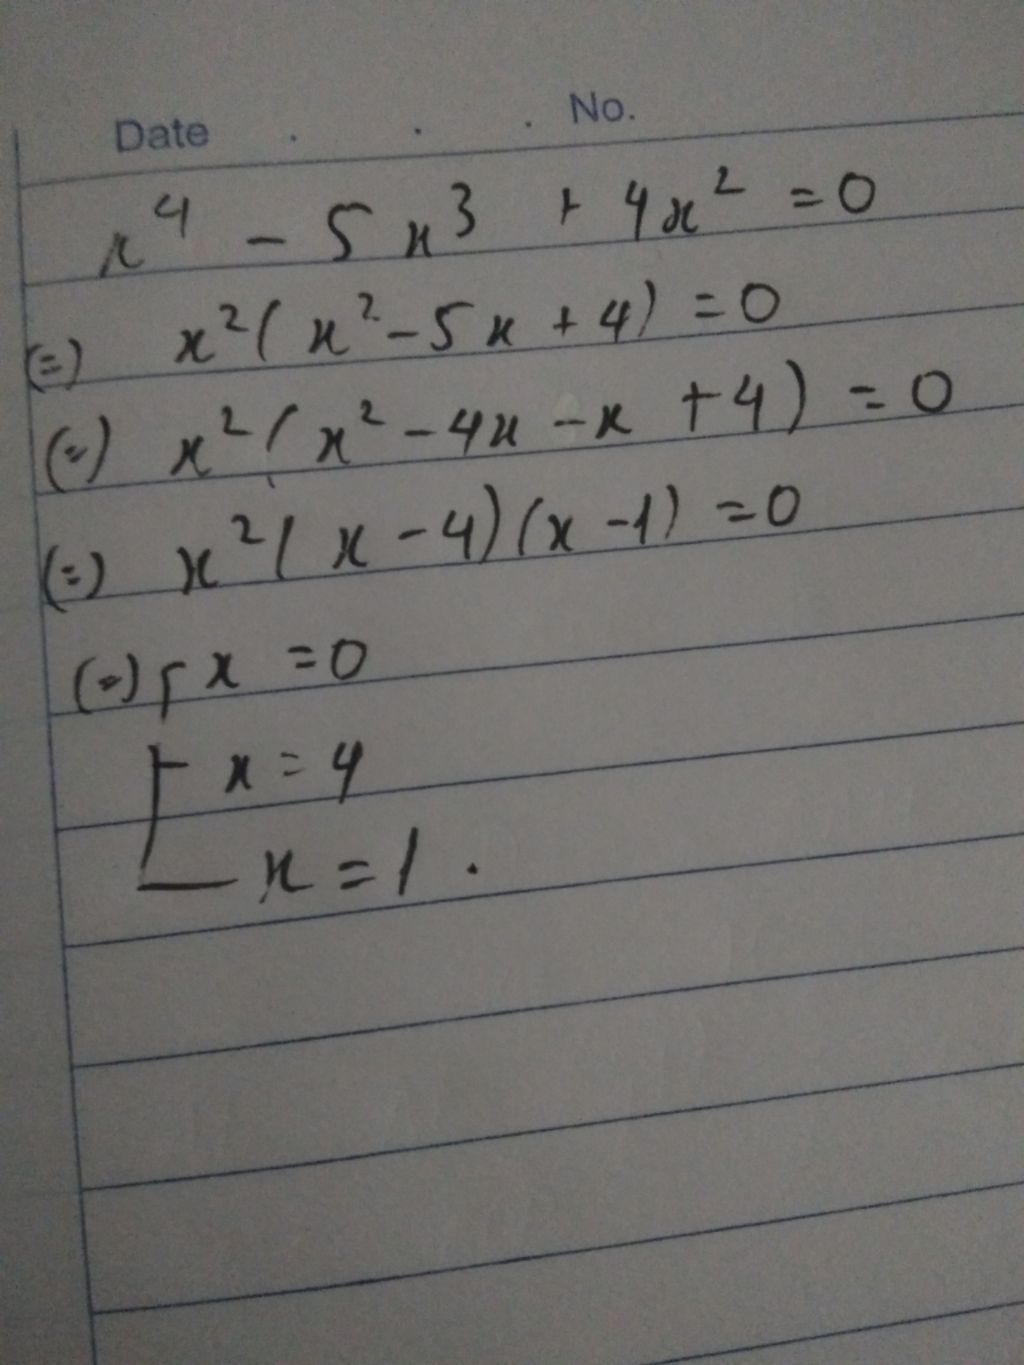 Date . . . No.
x⁴ - 5x³ + 4x² = 0
(=) x²(x² - 5x + 4) = 0
(=) x²(x² - 4x - x + 4) = 0
(=) x²(x - 4)(x - 1) = 0
(=) [ x = 0
x = 4
x = 1 .